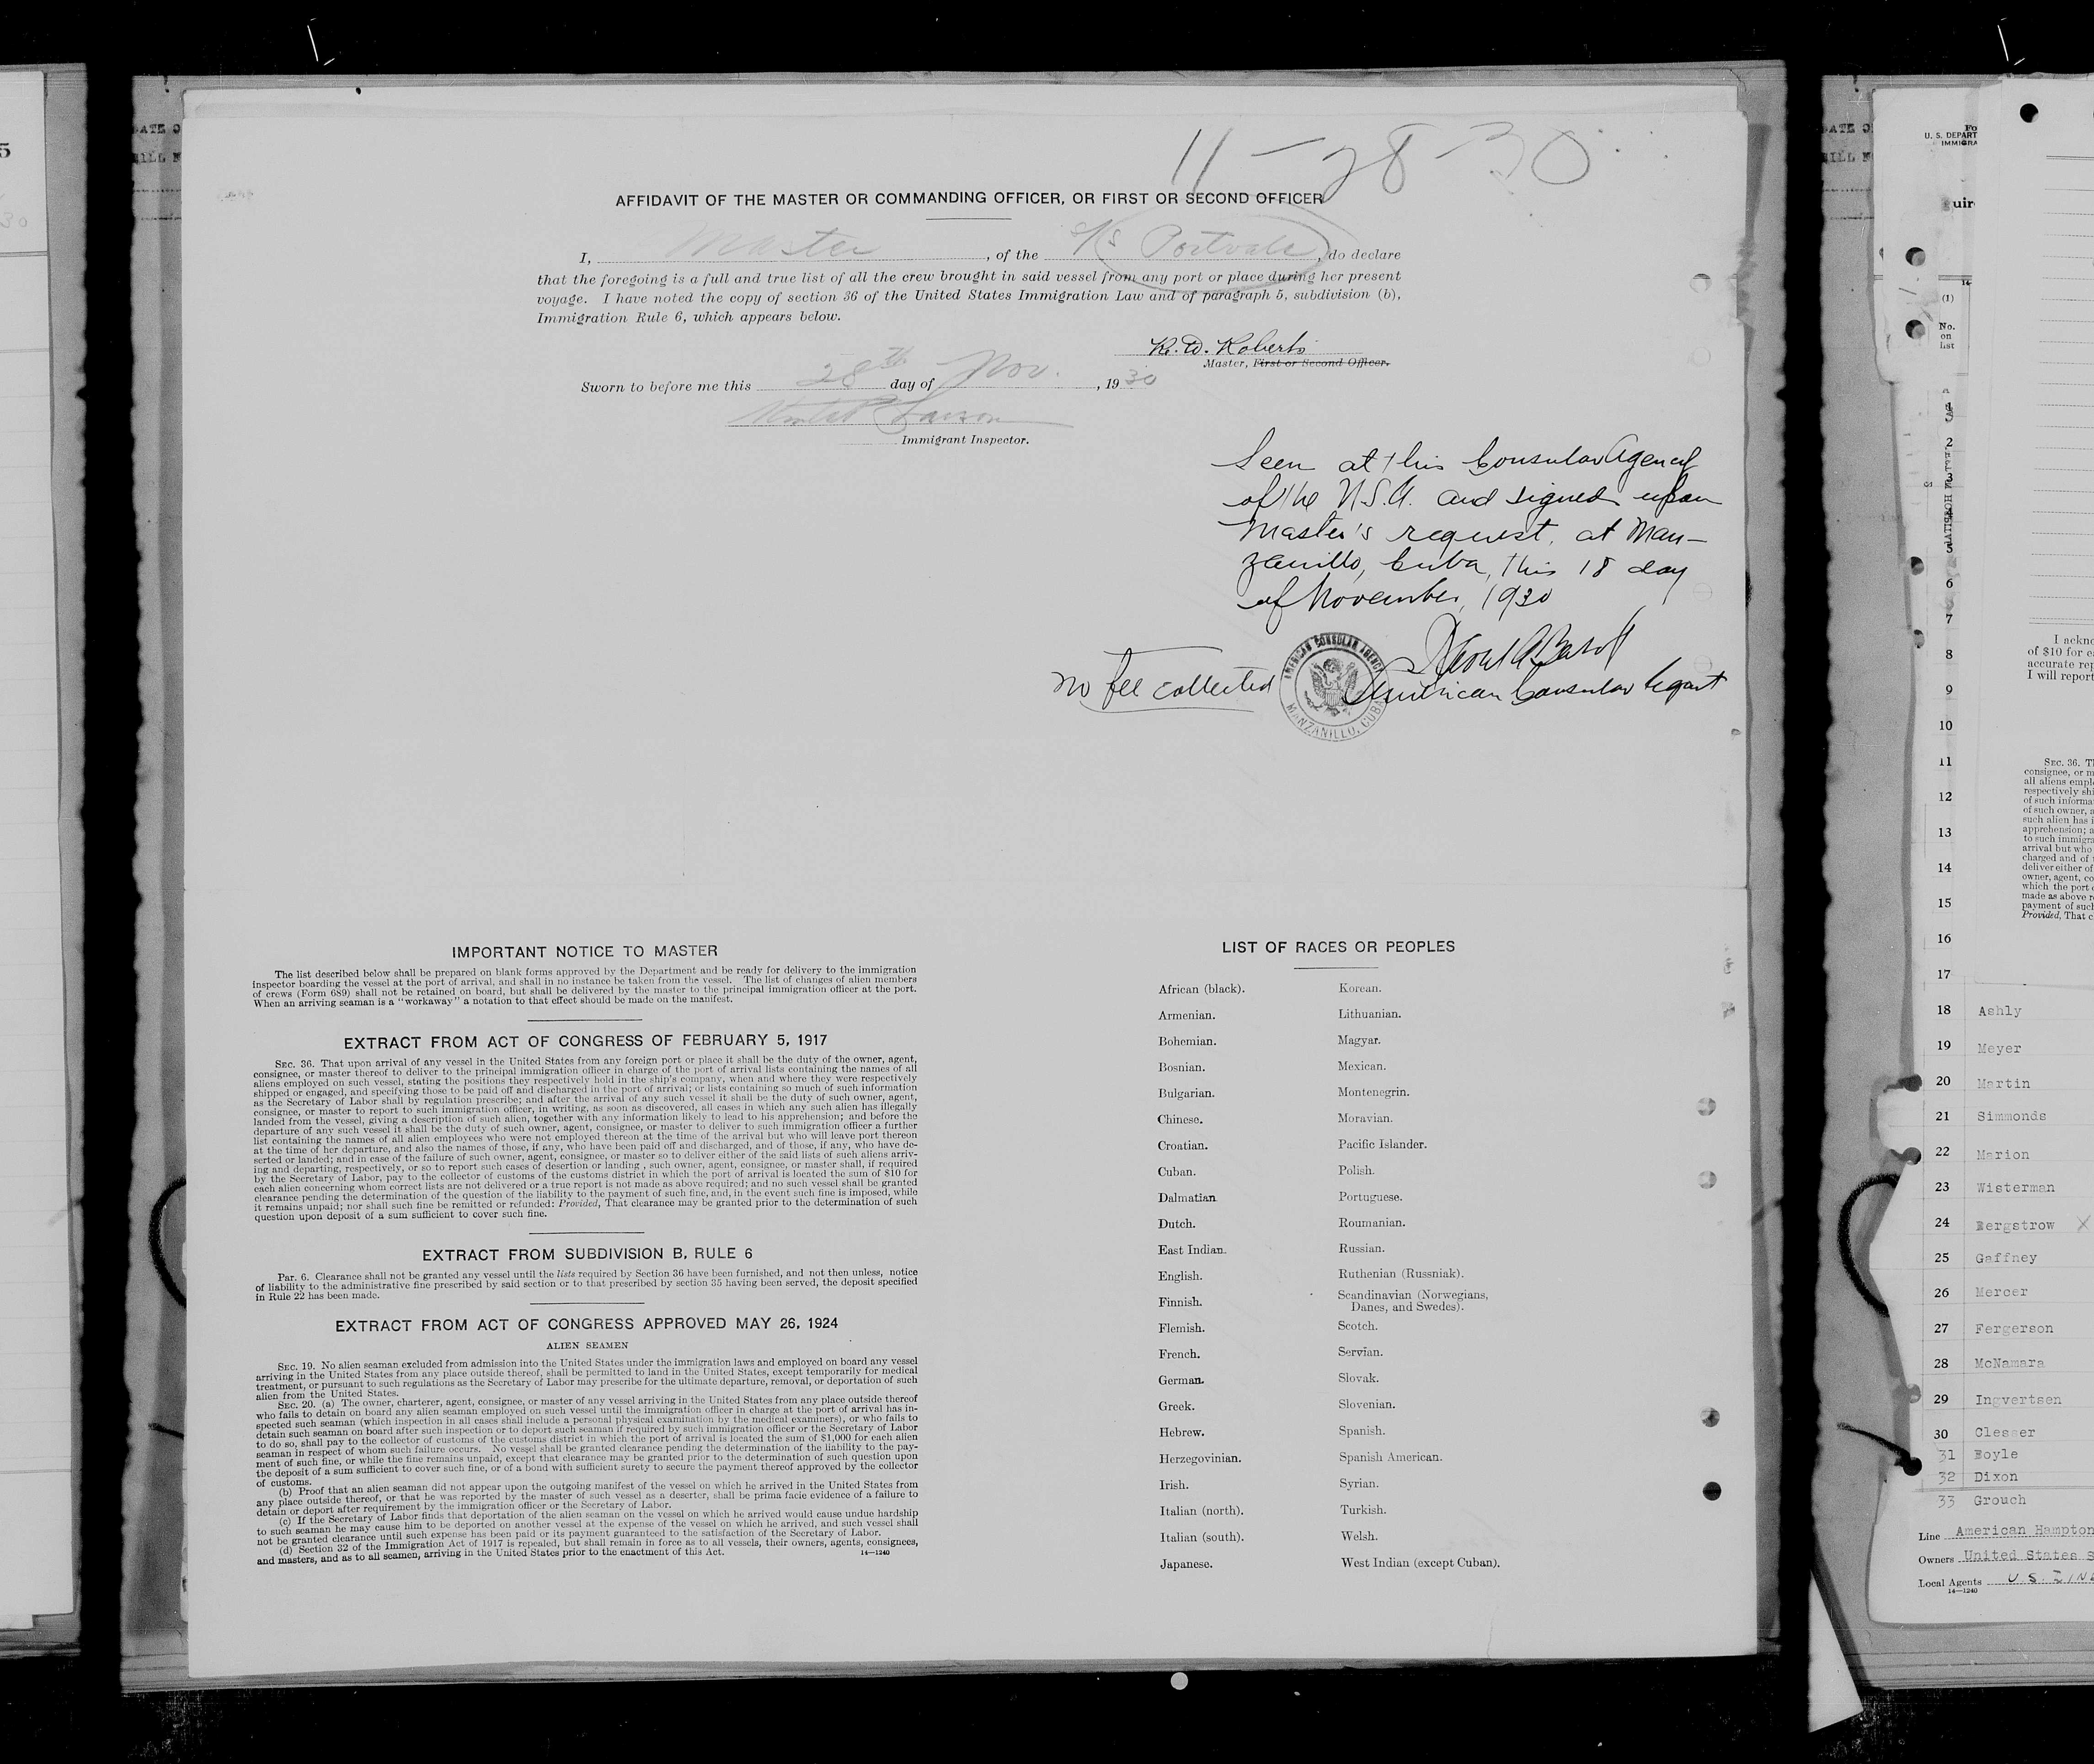 11-28-30
AFFIDAVIT OF THE MASTER OR COMMANDING OFFICER, OR FIRST OR SECOND OFFICER
I, Master, of the S/S Portvale, do declare
that the foregoing is a full and true list of all the crew brought in said vessel from any port or place during her present
voyage. I have noted the copy of section 36 of the United States Immigration Law and of paragraph 5, subdivision (b),
Immigration Rule 6, which appears below.
K. D. Roberts
Master, First or Second Officer.
Sworn to before me this 28th day of Nov., 1930
Immigrant Inspector.
Seen at this Consular Agency
of the U.S.A. and signed upon
Master's request, at Man-
zanillo, Cuba, this 18 day
of November, 1930
No fee collected
American Consular Agent
AMERICAN CONSULAR AGENCY
MANZANILLO, CUBA
IMPORTANT NOTICE TO MASTER
The list described below shall be prepared on blank forms approved by the Department and be ready for delivery to the immigration
inspector boarding the vessel at the port of arrival, and shall in no instance be taken from the vessel. The list of changes of alien members
of crews (Form 689) shall not be retained on board, but shall be delivered by the master to the principal immigration officer at the port.
When an arriving seaman is a "workaway" a notation to that effect should be made on the manifest.
EXTRACT FROM ACT OF CONGRESS OF FEBRUARY 5, 1917
SEC. 36. That upon arrival of any vessel in the United States from any foreign port or place it shall be the duty of the owner, agent,
consignee, or master thereof to deliver to the principal immigration officer in charge of the port of arrival lists containing the names of all
aliens employed on such vessel, stating the positions they respectively hold in the ship's company, when and where they were respectively
shipped or engaged, and specifying those to be paid off and discharged in the port of arrival; or lists containing so much of such information
as the Secretary of Labor shall by regulation prescribe; and after the arrival of any such vessel it shall be the duty of such owner, agent,
consignee, or master to report to such immigration officer, in writing, as soon as discovered, all cases in which any such alien has illegally
landed from the vessel, giving a description of such alien, together with any information likely to lead to his apprehension; and before the
departure of any such vessel it shall be the duty of such owner, agent, consignee, or master to deliver to such immigration officer a further
list containing the names of all alien employees who were not employed thereon at the time of the arrival but who will leave port thereon
at the time of her departure, and also the names of those, if any, who have been paid off and discharged, and of those, if any, who have de-
serted or landed; and in case of the failure of such owner, agent, consignee, or master so to deliver either of the said lists of such aliens arriv-
ing and departing, respectively, or so to report such cases of desertion or landing, such owner, agent, consignee, or master shall, if required
by the Secretary of Labor, pay to the collector of customs of the customs district in which the port of arrival is located the sum of $10 for
each alien concerning whom correct lists are not delivered or a true report is not made as above required; and no such vessel shall be granted
clearance pending the determination of the question of the liability to the payment of such fine, and, in the event such fine is imposed, while
it remains unpaid; nor shall such fine be remitted or refunded: Provided, That clearance may be granted prior to the determination of such
question upon deposit of a sum sufficient to cover such fine.
EXTRACT FROM SUBDIVISION B, RULE 6
Par. 6. Clearance shall not be granted any vessel until the lists required by Section 36 have been furnished, and not then unless, notice
of liability to the administrative fine prescribed by said section or to that prescribed by section 35 having been served, the deposit specified
in Rule 22 has been made.
EXTRACT FROM ACT OF CONGRESS APPROVED MAY 26, 1924
ALIEN SEAMEN
SEC. 19. No alien seaman excluded from admission into the United States under the immigration laws and employed on board any vessel
arriving in the United States from any place outside thereof, shall be permitted to land in the United States, except temporarily for medical
treatment, or pursuant to such regulations as the Secretary of Labor may prescribe for the ultimate departure, removal, or deportation of such
alien from the United States.
SEC. 20. (a) The owner, charterer, agent, consignee, or master of any vessel arriving in the United States from any place outside thereof
who fails to detain on board any alien seaman employed on such vessel until the immigration officer in charge at the port of arrival has in-
spected such seaman (which inspection in all cases shall include a personal physical examination by the medical examiners), or who fails to
detain such seaman on board after such inspection or to deport such seaman if required by such immigration officer or the Secretary of Labor
to do so, shall pay to the collector of customs of the customs district in which the port of arrival is located the sum of $1,000 for each alien
seaman in respect of whom such failure occurs. No vessel shall be granted clearance pending the determination of the liability to the pay-
ment of such fine, or while the fine remains unpaid, except that clearance may be granted prior to the determination of such question upon
the deposit of a sum sufficient to cover such fine, or of a bond with sufficient surety to secure the payment thereof approved by the collector
of customs.
(b) Proof that an alien seaman did not appear upon the outgoing manifest of the vessel on which he arrived in the United States from
any place outside thereof, or that he was reported by the master of such vessel as a deserter, shall be prima facie evidence of a failure to
detain or deport after requirement by the immigration officer or the Secretary of Labor.
(c) If the Secretary of Labor finds that deportation of the alien seaman on the vessel on which he arrived would cause undue hardship
to such seaman he may cause him to be deported on another vessel at the expense of the vessel on which he arrived, and such vessel shall
not be granted clearance until such expense has been paid or its payment guaranteed to the satisfaction of the Secretary of Labor.
(d) Section 32 of the Immigration Act of 1917 is repealed, but shall remain in force as to all vessels, their owners, agents, consignees,
and masters, and as to all seamen, arriving in the United States prior to the enactment of this Act.
14—1240
LIST OF RACES OR PEOPLES
African (black).
Armenian.
Bohemian.
Bosnian.
Bulgarian.
Chinese.
Croatian.
Cuban.
Dalmatian
Dutch.
East Indian.
English.
Finnish.
Flemish.
French.
German.
Greek.
Hebrew.
Herzegovinian.
Irish.
Italian (north).
Italian (south).
Japanese.
Korean.
Lithuanian.
Magyar.
Mexican.
Montenegrin.
Moravian.
Pacific Islander.
Polish.
Portuguese.
Roumanian.
Russian.
Ruthenian (Russniak).
Scandinavian (Norwegians,
Danes, and Swedes).
Scotch.
Servian.
Slovak.
Slovenian.
Spanish.
Spanish American.
Syrian.
Turkish.
Welsh.
West Indian (except Cuban).
U. S. DEPART
IMMIGRA
(1)
No.
on
list
1
2
3
5
6
7
8
9
10
11
12
13
14
15
16
17
18 Ashly
19 Meyer
20 Martin
21 Simmonds
22 Marion
23 Wisterman
24 Bergstrow X
25 Gaffney
26 Mercer
27 Fergerson
28 McNamara
29 Ingvertsen
30 Clesser
31 Boyle
32 Dixon
33 Grouch
Line American Hampton
Owners United States S
Local Agents U.S. LINE
14—1240
I ackno
of $10 for e
accurate rep
I will report
SEC. 36. T
consignee, or m
all aliens empl
respectively shi
of such informa
of such owner, a
such alien has i
apprehension; a
to such immigra
arrival but who
charged and of
deliver either of
owner, agent, co
which the port o
made as above r
payment of such
Provided, That c